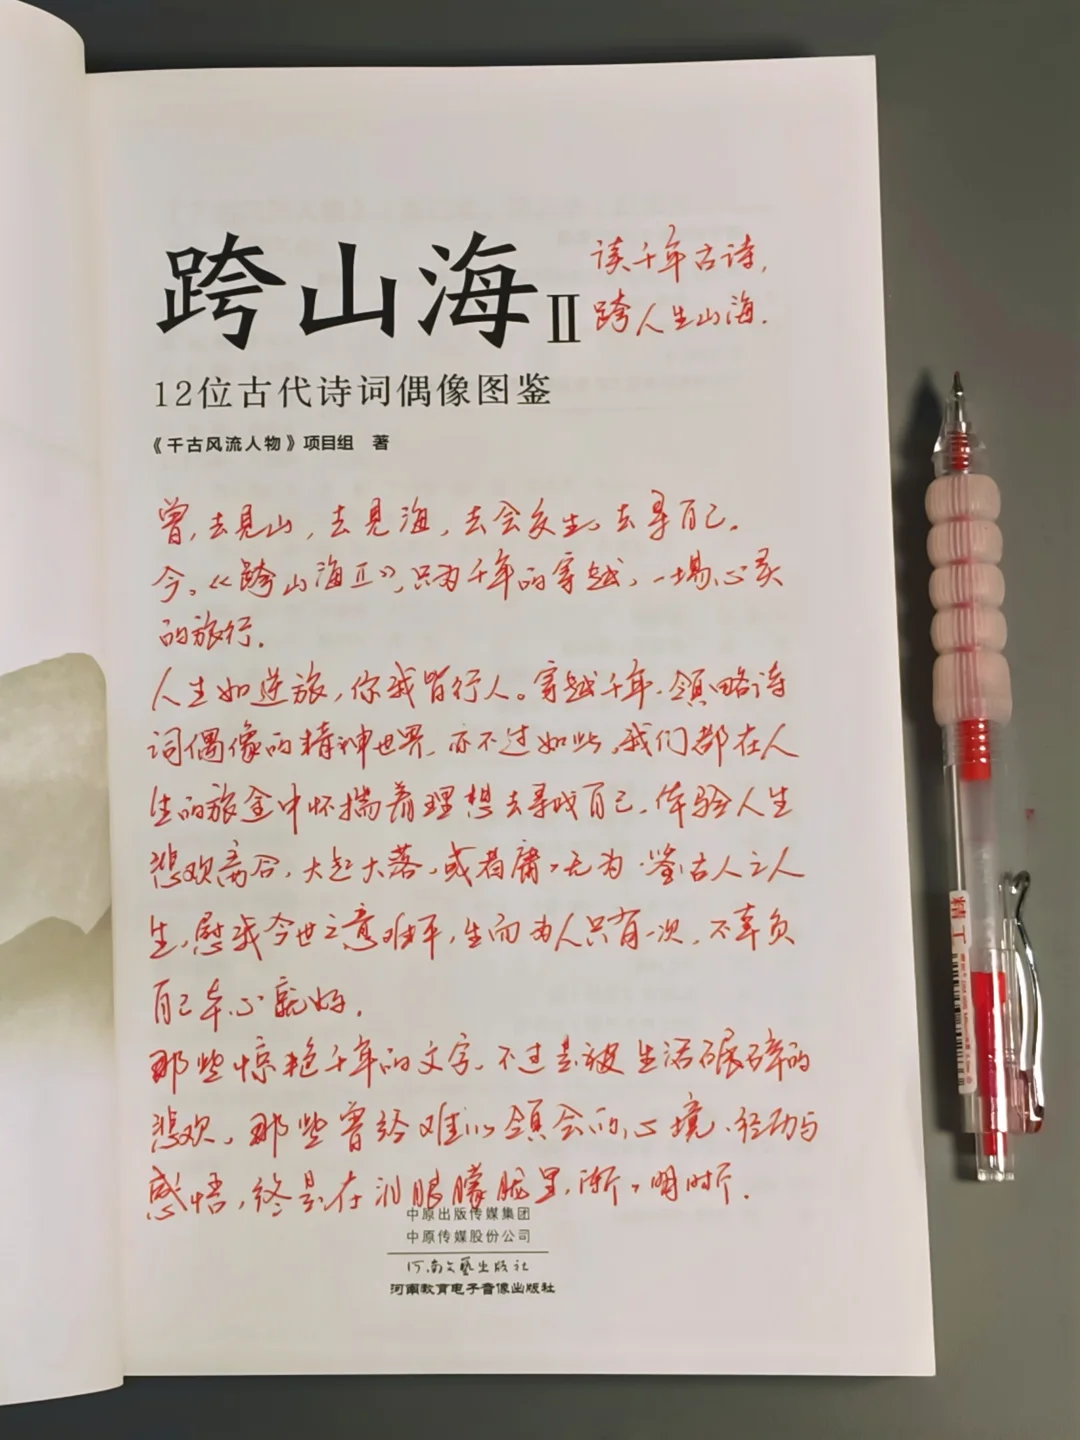 跨山海Ⅱ
读千年古诗,
跨人生山海.
12位古代诗词偶像图鉴
《千古风流人物》项目组 著
曾,去见山,去见海,去会众生、去寻自己.
今。《跨山海Ⅱ》,只为千年的穿越,一场心灵
的旅行.
人生如逆旅,你我皆行人。穿越千年、领略诗
词偶像的精神世界、亦不过如此,我们都在人
生的旅途中怀揣着理想去寻找自己、体验人生
悲欢离合,大起大落,或者庸庸无为.鉴古人之人
生,慰我今世之意难平,生而为人只有一次,不辜负
自己本心就好.
那些惊艳千年的文字、不过是被生活碾碎的
悲欢,那些曾经难以领会的心境、经历与
感悟,终是在泪眼朦胧里,渐渐明晰.
中原出版传媒集团
中原传媒股份公司
河南文艺出版社
河南教育电子音像出版社
精工